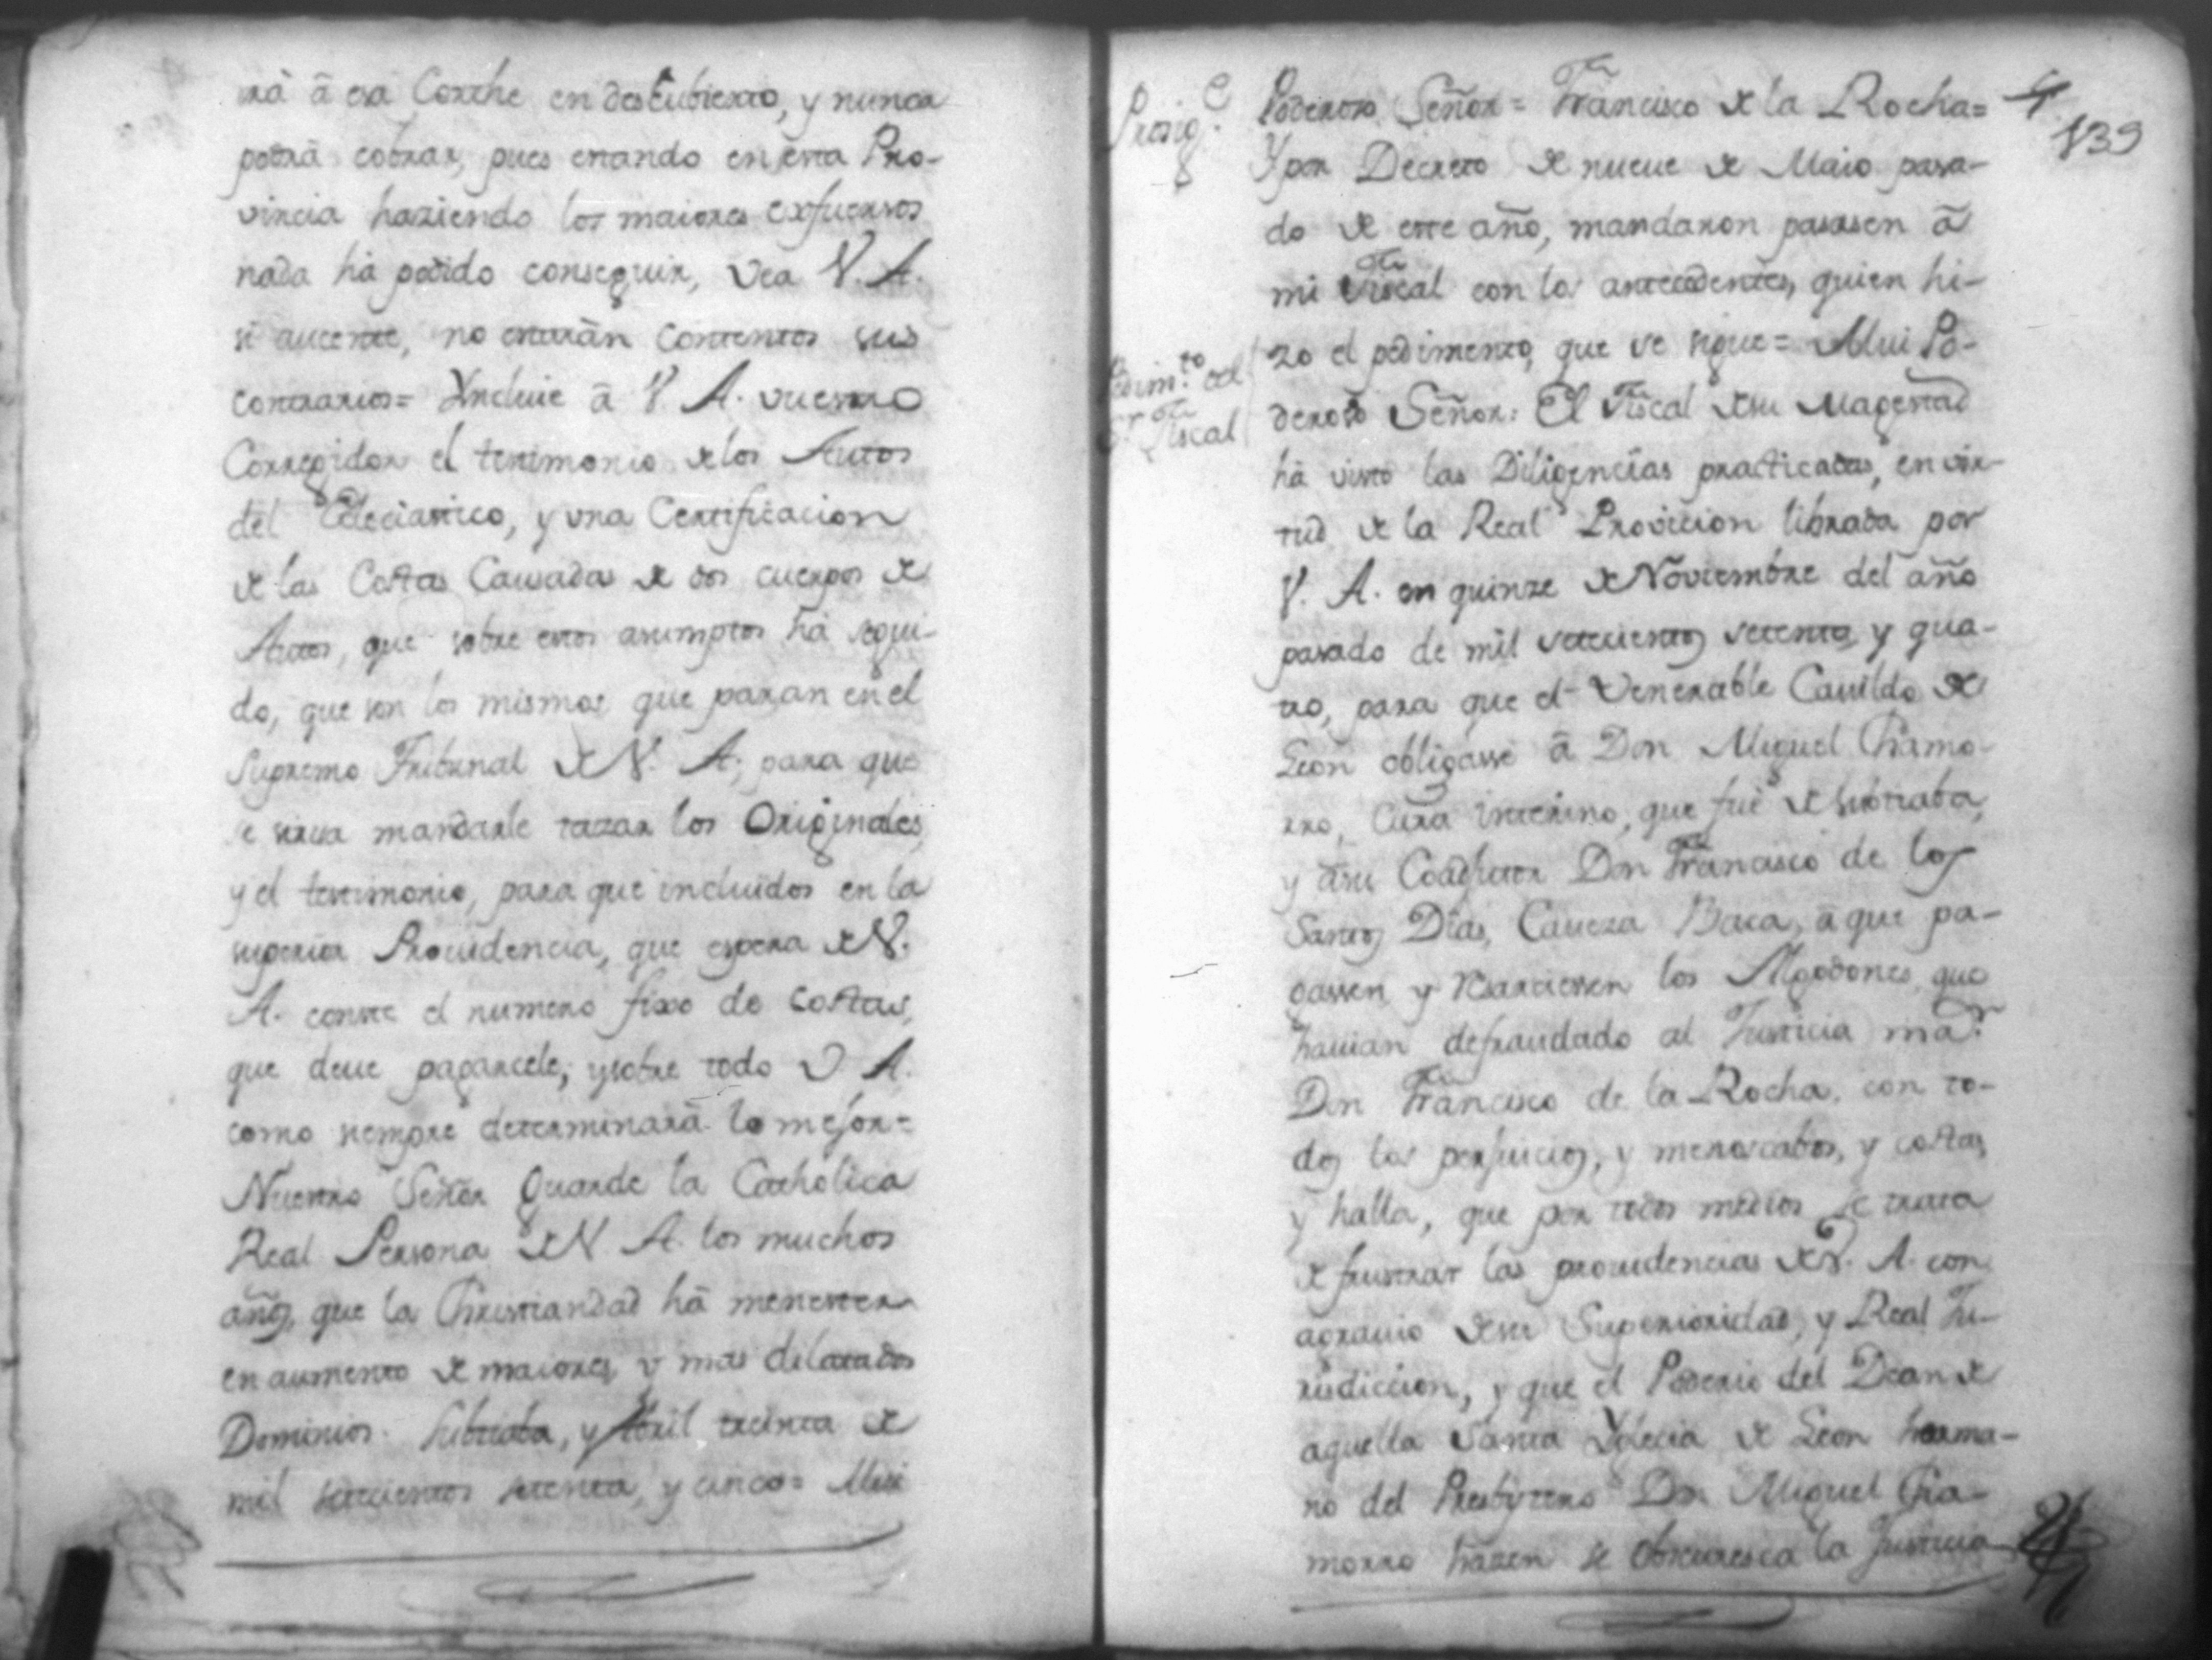 irá â esa Corthe en descubierto, y nunca
podrâ cobrar, pues estando en esta Pro-
vincia haziendo los maiores exfuersos
nada há podido conseguir, vea V. A.
si aucente, no estarân contentos sus
contrarios= Yncluie â V. A. vuestro
Corregidor el testimonio de los Autos
del Eclesiastico, y una Certificacion
de las Costas Causadas de dos cuerpos de
Autos, que sobre estos asumptos há segui-
do, que son los mismos que paran en el
Supremo Tribunal de V. A; para que
se sirva mandarle tazar los Originales,
y el testimonio, para que incluidos en la
superior Providencia, que espera de V.
A. conste el numero fixo de costas,
que deue pagarcele; y sobre todo V A.
como siempre determinarâ lo mejor=
Nuestro Señor Guarde la Catholica
Real Persona de V. A. los muchos
años, que la Christiandad hâ menester
en aumento de maiores, y mas dilatados
Dominios. Subtiaba, y Abril treinta de
mil setecientos setenta, y cinco= Mui
4
139
Prosig.e
Poderoso Señor= Francisco de la Rocha=
Y por Decreto de nueue de Maio pasa-
do de este año, mandaron pasasen â
mi Fiscal con los antecedentes, quien hi-
Pedim.to del
S.r Fiscal
zo el pedimento, que se sigue= Mui Po-
deroso Señor: El Fiscal de su Magestad
há visto las Diligencias practicadas, en vir-
tud de la Real Provicion librada por
V. A. en quinze de Noviembre del año
pasado de mil setecientos setenta, y qua-
tro, para que el Venerable Cauildo de
Leon obligasse â Don Miguel Chamo-
rro, Cura interino, que fué de Subtiaba,
y â su Coadjutor Don Francisco de los
Santos Dias, Caueza Baca, â que pa-
gassen y resarciessen los Algodones, que
hauian defraudado al Justicia ma.r
Don Francisco de la Rocha, con to-
dos los perjuicios, y menoscabos, y costas,
y halla, que por todos medios se trata
de frustrar las prouidencias de V. A. con
agrauio de su Superioridad, y Real Ju-
risdiccion, y que el Poderio del Dean de
aquella Santa Yglecia de Leon herma-
no del Presbytero Don Miguel Cha-
morro hazen se obscuresca la Justicia